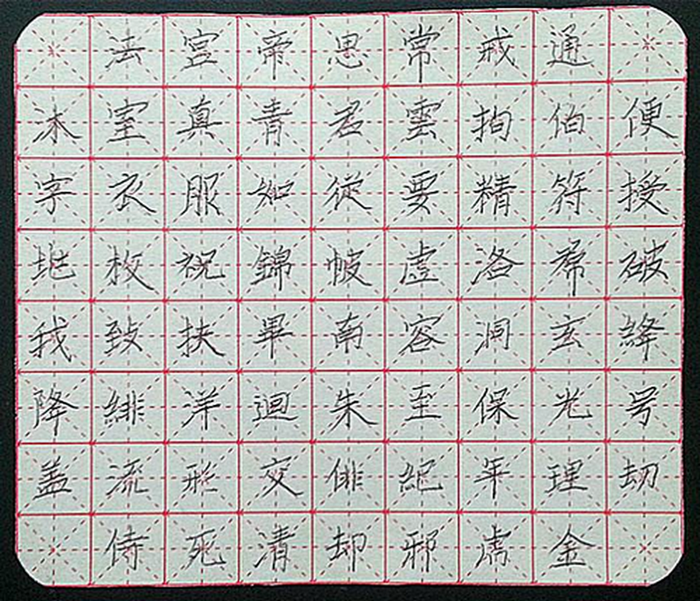 法宫帝思常戒通
沐室真青君雲拘伯便
字衣服如從要精符授
地枚祝錦帔虛洛希破
我致扶畢南容洞玄絳
降緋洋迴朱至保光号
盖流形交俳絕年理劫
侍死清却邪虜金